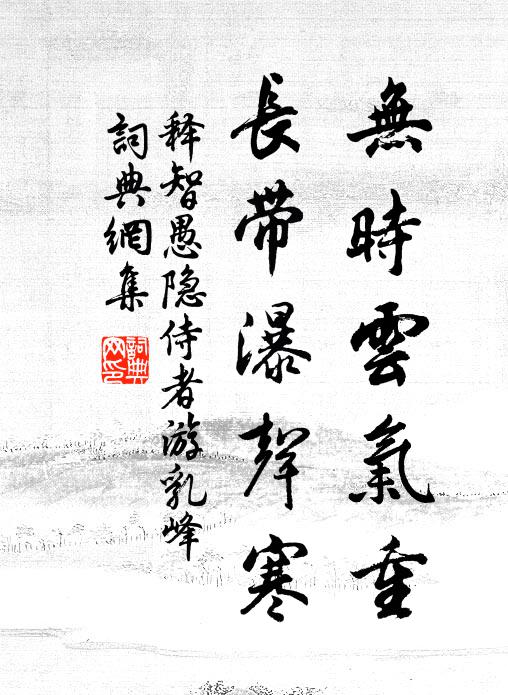 無時雲氣重
長帶瀑聲寒
释智愚隐侍者游乳峰
詞典網集
詞典网印